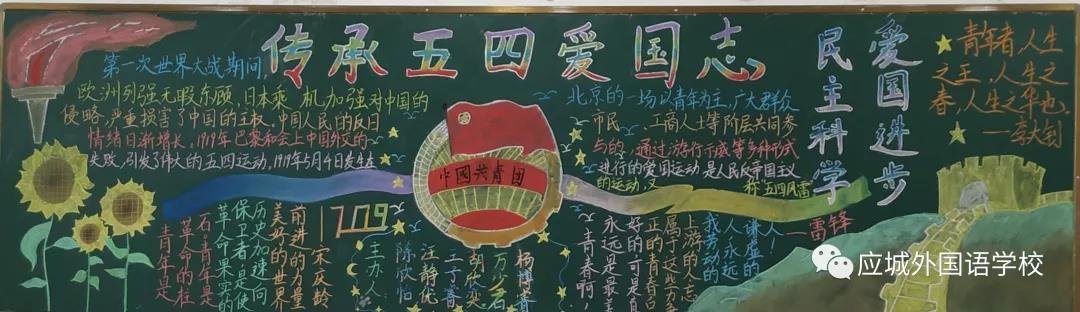 传承五四爱国志
第一次世界大战期间,
欧洲列强无暇东顾,日本乘机加强对中国的
侵略,严重损害了中国的主权,中国人民的反日
情绪日渐增长。1919年巴黎和会上中国外交的
失败,引发了伟大的五四运动,1919年5月4日发生在
北京的一场以青年为主,广大群众
市民、工商人士等阶层共同参
与的,通过游行示威等多种形式
进行的爱国运动是人民反帝国主义
的运动,又称五四风雷
爱国进步
民主科学
青年者,人生
之王,人生之
春,人生之华也。
—李大钊
中國共青团
青年是
革命的柱
石,青年是
革命果实的
保卫者是使
历史加速向
美好的世界
前进的力量
——宋庆龄
1709
主办人
陈欣怡
汪静优
胡欣奕
杨博睿
青春啊
永远是最美
好的可是真
正的青春只
属于这些力争
上游的人
我劳动的
人永远
谦虚的
人!
—雷锋
应城外国语学校